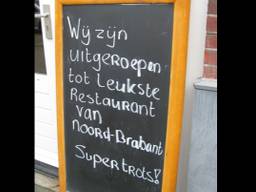 Wij zijn
uitgeroepen
tot Leukste
Restaurant
van
Noord-Brabant
Super trots!